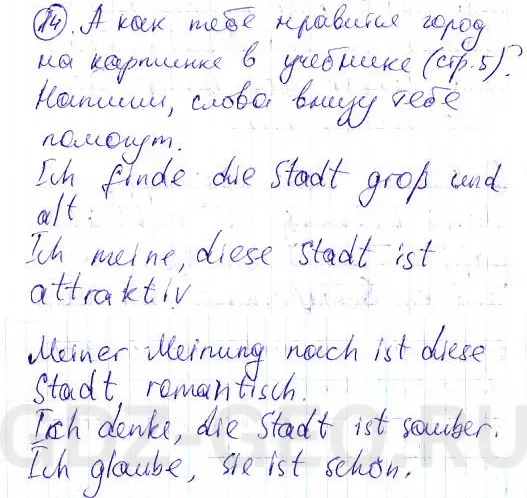 14. А как тебе нравится город
на картинке в учебнике (стр.5)?
Напиши, слова внизу тебе
помогут.
Ich finde die Stadt groß und
alt.
Ich meine, diese Stadt ist
attraktiv
Meiner Meinung nach ist diese
Stadt romantisch.
Ich denke, die Stadt ist sauber.
Ich glaube, sie ist schön.
GDZ-GEO.RU